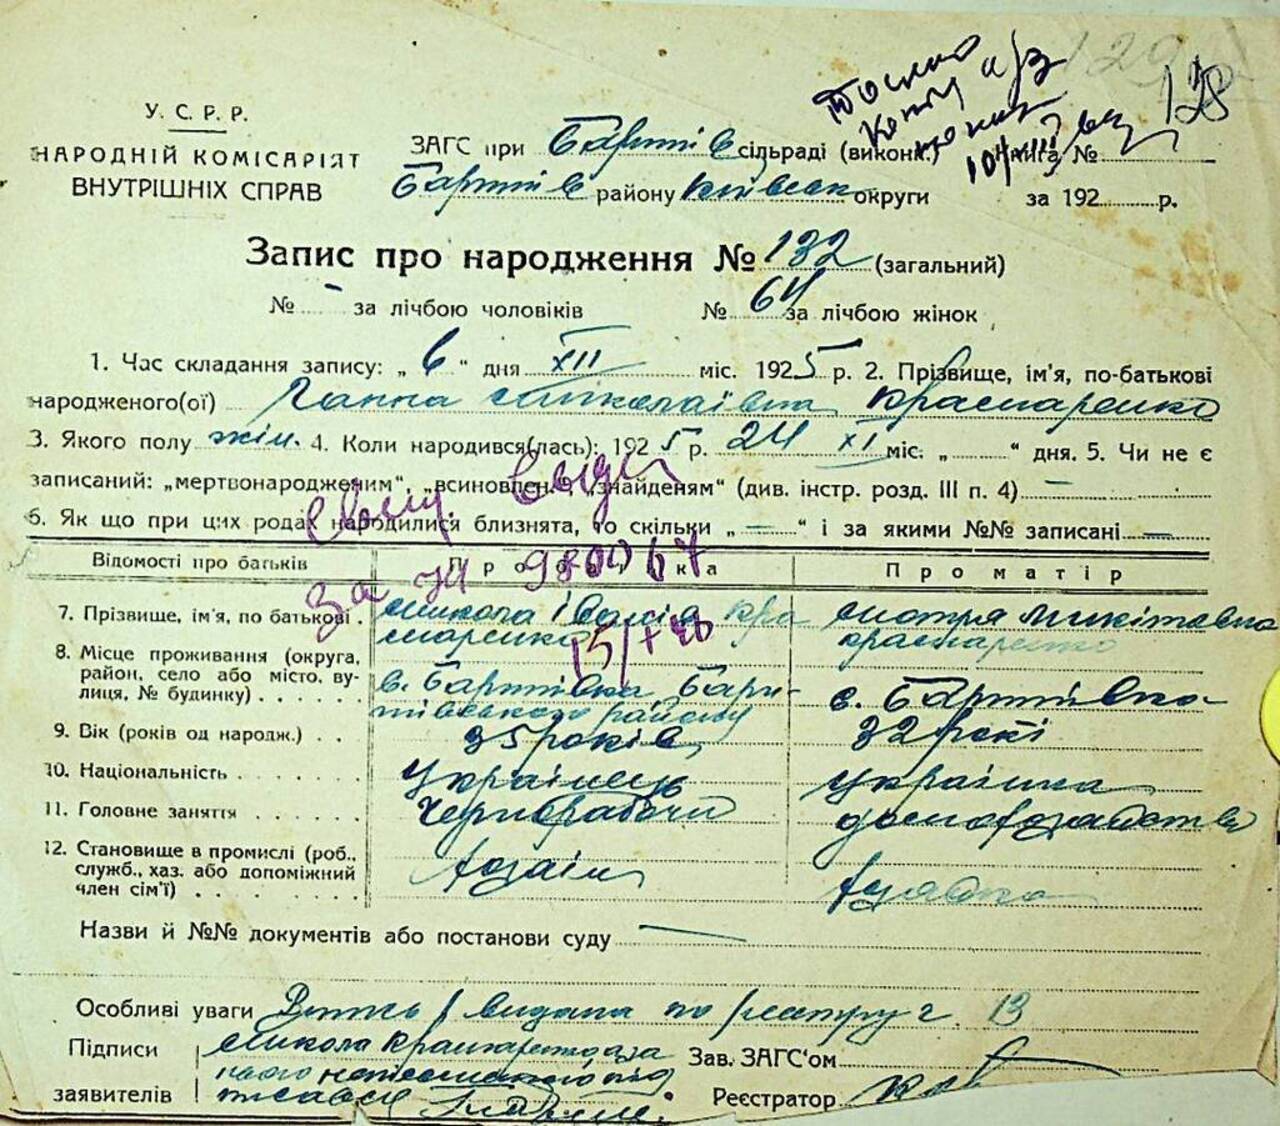 128
У. С. Р. Р.
НАРОДНІЙ КОМІСАРІЯТ
ВНУТРІШНІХ СПРАВ
ЗАГС при сільраді (викон.) Книга №
району Київськ округи за 192 р.
Запис про народження № 132 (загальний)
№ - за лічбою чоловіків № 64 за лічбою жінок
1. Час складання запису: „ 6 " дня XII міс. 1925 р. 2. Прізвище, ім'я, по-батькові
народженого(ої) Ганна Миколаівна Краснаренко
3. Якого полу жін. 4. Коли народився(лась): 1925 р. 24 XI міс. „ " дня. 5. Чи не є
записаний: „мертвонародженим", „всиновлен.", „знайденям" (див. інстр. розд. III п. 4) —
6. Як що при цих родах народилися близнята, то скільки „ — " і за якими №№ записані —
Свид. выд.
за № 980067
15/X
Відомості про батьків Про батька Про матір
7. Прізвище, ім'я, по батькові . Микола Кра Мотря Микітовна
снаренко Краснаренко
8. Місце проживання (округа,
район, село або місто, вулиця, № будинку) . . . . . с. району с.
9. Вік (років од народж.) . . 35 років 32 рокі
10. Національність . . . . . . . Українець Українка
11. Головне заняття . . . . . . Чернорабочи домохозайство
12. Становище в промислі (роб.,
служб., хаз. або допоміжний
член сім'ї) . . . . . . . хозаін
Назви й №№ документів або постанови суду —
Особливі уваги видана по реэстру 13
Підписи Микола Краснаренко Зав. ЗАГС'ом
заявителів Реєстратор